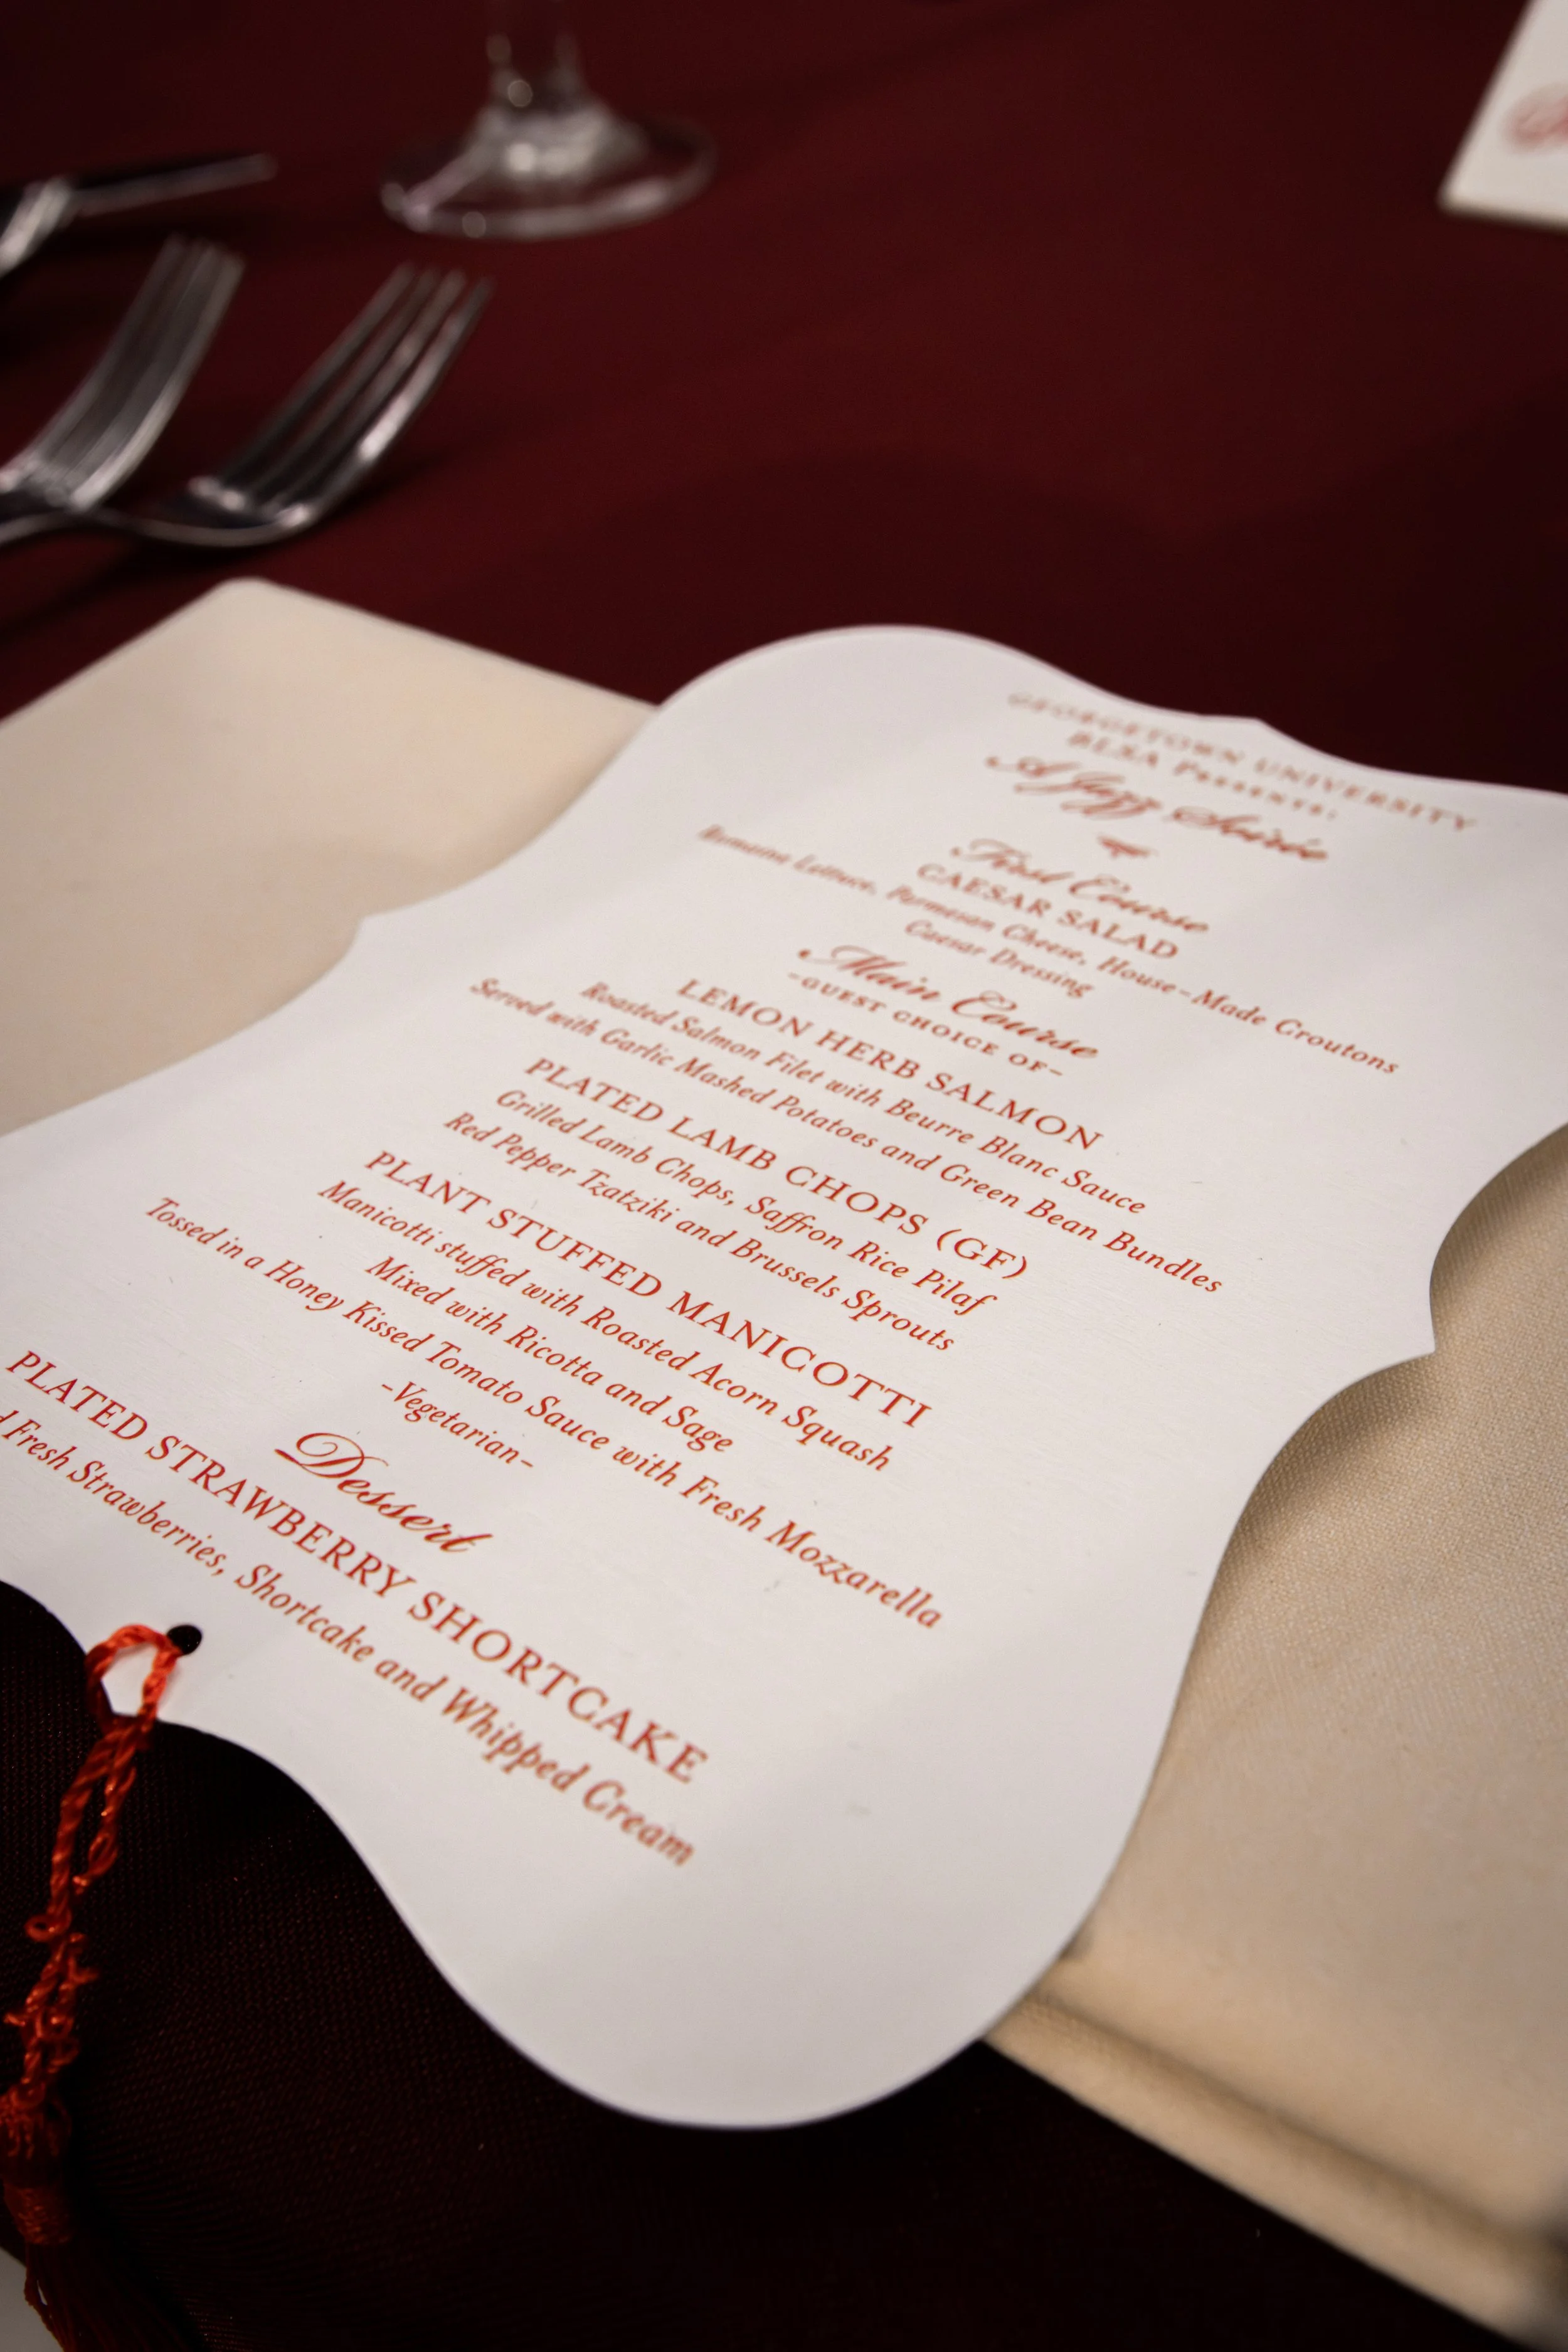 GEORGETOWN UNIVERSITY
BLSA Presents:
A Jazz Soirée
First Course
CAESAR SALAD
Romaine Lettuce, Parmesan Cheese, House-Made Croutons
Caesar Dressing
Main Course
-GUEST CHOICE OF-
LEMON HERB SALMON
Roasted Salmon Filet with Beurre Blanc Sauce
Served with Garlic Mashed Potatoes and Green Bean Bundles
PLATED LAMB CHOPS (GF)
Grilled Lamb Chops, Saffron Rice Pilaf
Red Pepper Tzatziki and Brussels Sprouts
PLANT STUFFED MANICOTTI
Manicotti stuffed with Roasted Acorn Squash
Mixed with Ricotta and Sage
Tossed in a Honey Kissed Tomato Sauce with Fresh Mozzarella
-Vegetarian-
Dessert
PLATED STRAWBERRY SHORTCAKE
Fresh Strawberries, Shortcake and Whipped Cream